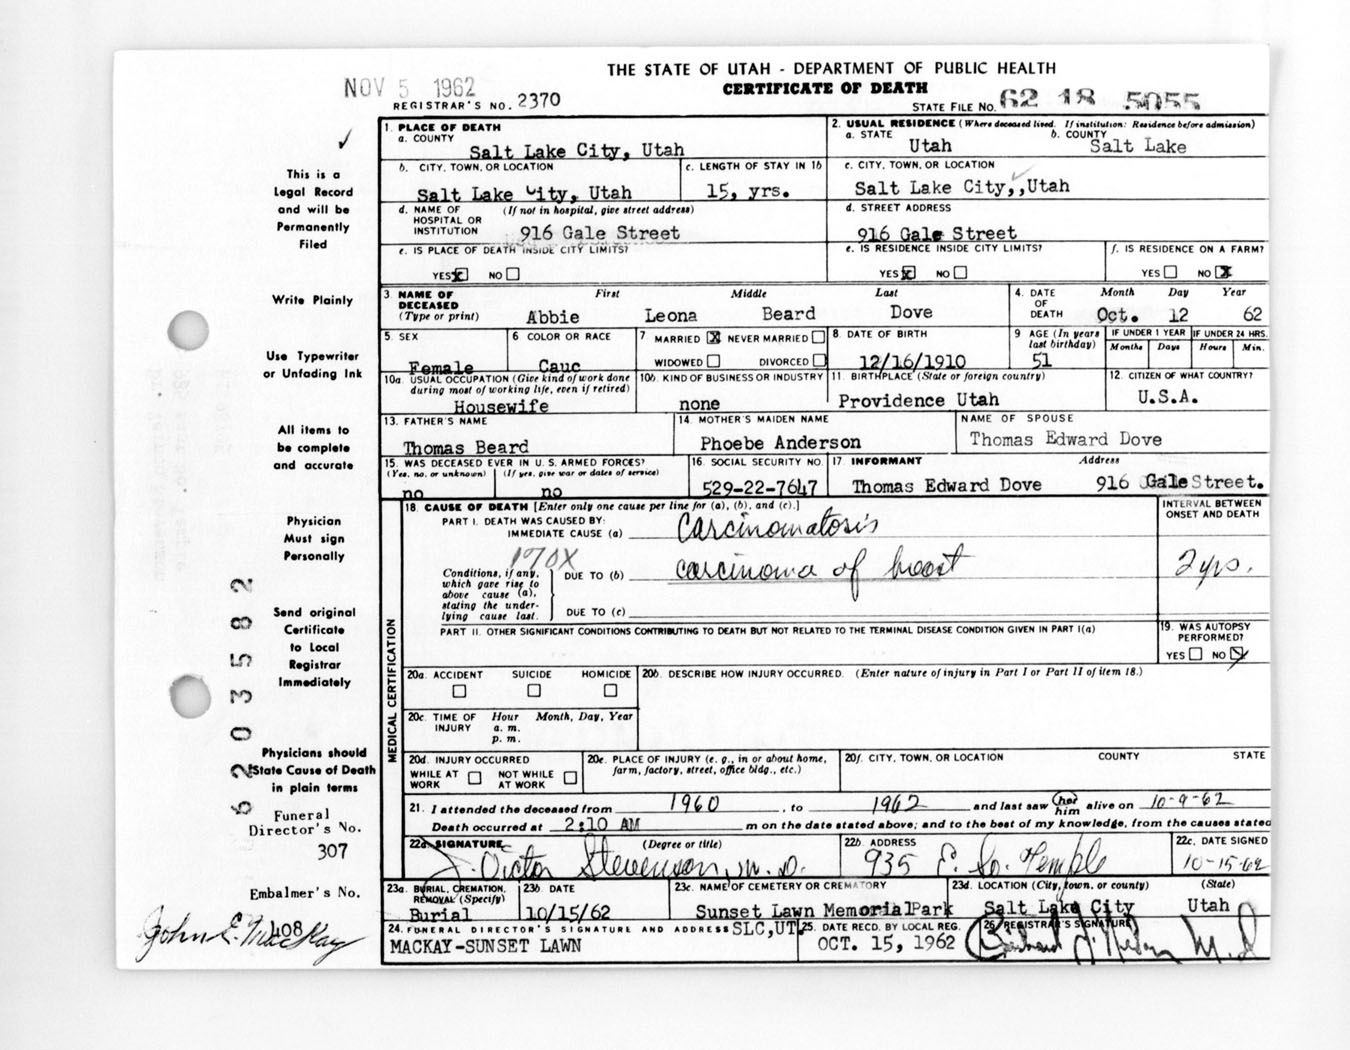 THE STATE OF UTAH - DEPARTMENT OF PUBLIC HEALTH
NOV 5 1962
CERTIFICATE OF DEATH
REGISTRAR'S NO. 2370
STATE FILE NO. 62 18 5055
This is a
Legal Record
and will be
Permanently
Filed
Write Plainly
Use Typewriter
or Unfading Ink
All items to
be complete
and accurate
Physician
Must sign
Personally
Send original
Certificate
to Local
Registrar
Immediately
Physicians should
State Cause of Death
in plain terms
Funeral
Director's No.
307
Embalmer's No.
408
John E. MacKay
62 03582
1. PLACE OF DEATH
a. COUNTY
Salt Lake City, Utah
2. USUAL RESIDENCE (Where deceased lived. If institution: Residence before admission)
a. STATE b. COUNTY
Utah Salt Lake
b. CITY, TOWN, OR LOCATION
Salt Lake City, Utah
c. LENGTH OF STAY IN 1b
15, yrs.
c. CITY, TOWN, OR LOCATION
Salt Lake City,,Utah
d. NAME OF (If not in hospital, give street address)
HOSPITAL OR
INSTITUTION 916 Gale Street
d. STREET ADDRESS
916 Gale Street
e. IS PLACE OF DEATH INSIDE CITY LIMITS?
YES X NO
e. IS RESIDENCE INSIDE CITY LIMITS?
YES X NO
f. IS RESIDENCE ON A FARM?
YES NO X
3. NAME OF First Middle Last
DECEASED
(Type or print) Abbie Leona Beard Dove
4. DATE Month Day Year
OF
DEATH Oct. 12 62
5. SEX
Female
6 COLOR OR RACE
Cauc
7 MARRIED X NEVER MARRIED
WIDOWED DIVORCED
8. DATE OF BIRTH
12/16/1910
9 AGE (In years
last birthday)
51
IF UNDER 1 YEAR IF UNDER 24 HRS.
Months Days Hours Min.
10a. USUAL OCCUPATION (Give kind of work done
during most of working life, even if retired)
Housewife
10b. KIND OF BUSINESS OR INDUSTRY
none
11. BIRTHPLACE (State or foreign country)
Providence Utah
12. CITIZEN OF WHAT COUNTRY?
U.S.A.
13. FATHER'S NAME
Thomas Beard
14. MOTHER'S MAIDEN NAME
Phoebe Anderson
NAME OF SPOUSE
Thomas Edward Dove
15. WAS DECEASED EVER IN U. S. ARMED FORCES?
(Yes, no. or unknown) (If yes, give war or dates of service)
no no
16. SOCIAL SECURITY NO.
529-22-7647
17. INFORMANT Address
Thomas Edward Dove 916 Gale Street.
18. CAUSE OF DEATH [Enter only one cause per line for (a), (b), and (c).]
PART I. DEATH WAS CAUSED BY:
IMMEDIATE CAUSE (a) Carcinomatosis
170X
Conditions, if any,
which gave rise to
above cause (a),
stating the under-
lying cause last.
DUE TO (b) carcinoma of breast
DUE TO (c)
INTERVAL BETWEEN
ONSET AND DEATH
2 yrs.
PART II. OTHER SIGNIFICANT CONDITIONS CONTRIBUTING TO DEATH BUT NOT RELATED TO THE TERMINAL DISEASE CONDITION GIVEN IN PART I(a)
19. WAS AUTOPSY
PERFORMED?
YES NO
MEDICAL CERTIFICATION
20a. ACCIDENT SUICIDE HOMICIDE
20b. DESCRIBE HOW INJURY OCCURRED. (Enter nature of injury in Part I or Part II of item 18.)
20c. TIME OF Hour Month, Day, Year
INJURY a. m.
p. m.
20d. INJURY OCCURRED
WHILE AT NOT WHILE
WORK AT WORK
20e. PLACE OF INJURY (e. g., in or about home,
farm, factory, street, office bldg., etc.)
20f. CITY, TOWN, OR LOCATION COUNTY STATE
21. I attended the deceased from 1960, to 1962 and last saw her him alive on 10-9-62
Death occurred at 2:10 AM m on the date stated above; and to the best of my knowledge, from the causes stated
22a. SIGNATURE (Degree or title)
J. Victor Stevenson, M. D.
22b. ADDRESS
935 E. So. Temple
22c. DATE SIGNED
10-15-62
23a. BURIAL, CREMATION,
REMOVAL (Specify)
Burial
23b. DATE
10/15/62
23c. NAME OF CEMETERY OR CREMATORY
Sunset Lawn Memorial Park
23d. LOCATION (City, town, or county) (State)
Salt Lake City Utah
24. FUNERAL DIRECTOR'S SIGNATURE AND ADDRESS SLC,UT.
MACKAY-SUNSET LAWN
25. DATE RECD. BY LOCAL REG.
OCT. 15, 1962
26. REGISTRAR'S SIGNATURE
M.D.